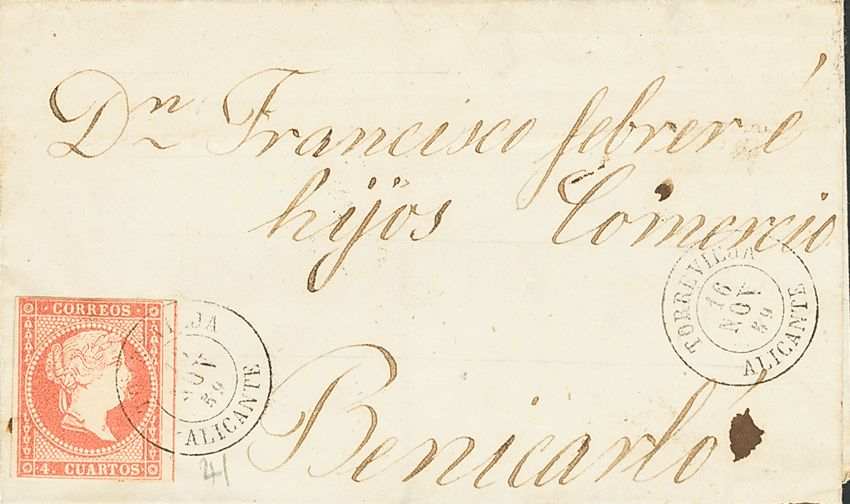 Dn Francisco febrer é
hijos Comercio
TORREVIEJA
16
NOV
59
ALICANTE
CORREOS
4. CUARTOS
NOV
59
ALICANTE
Benicarló
41